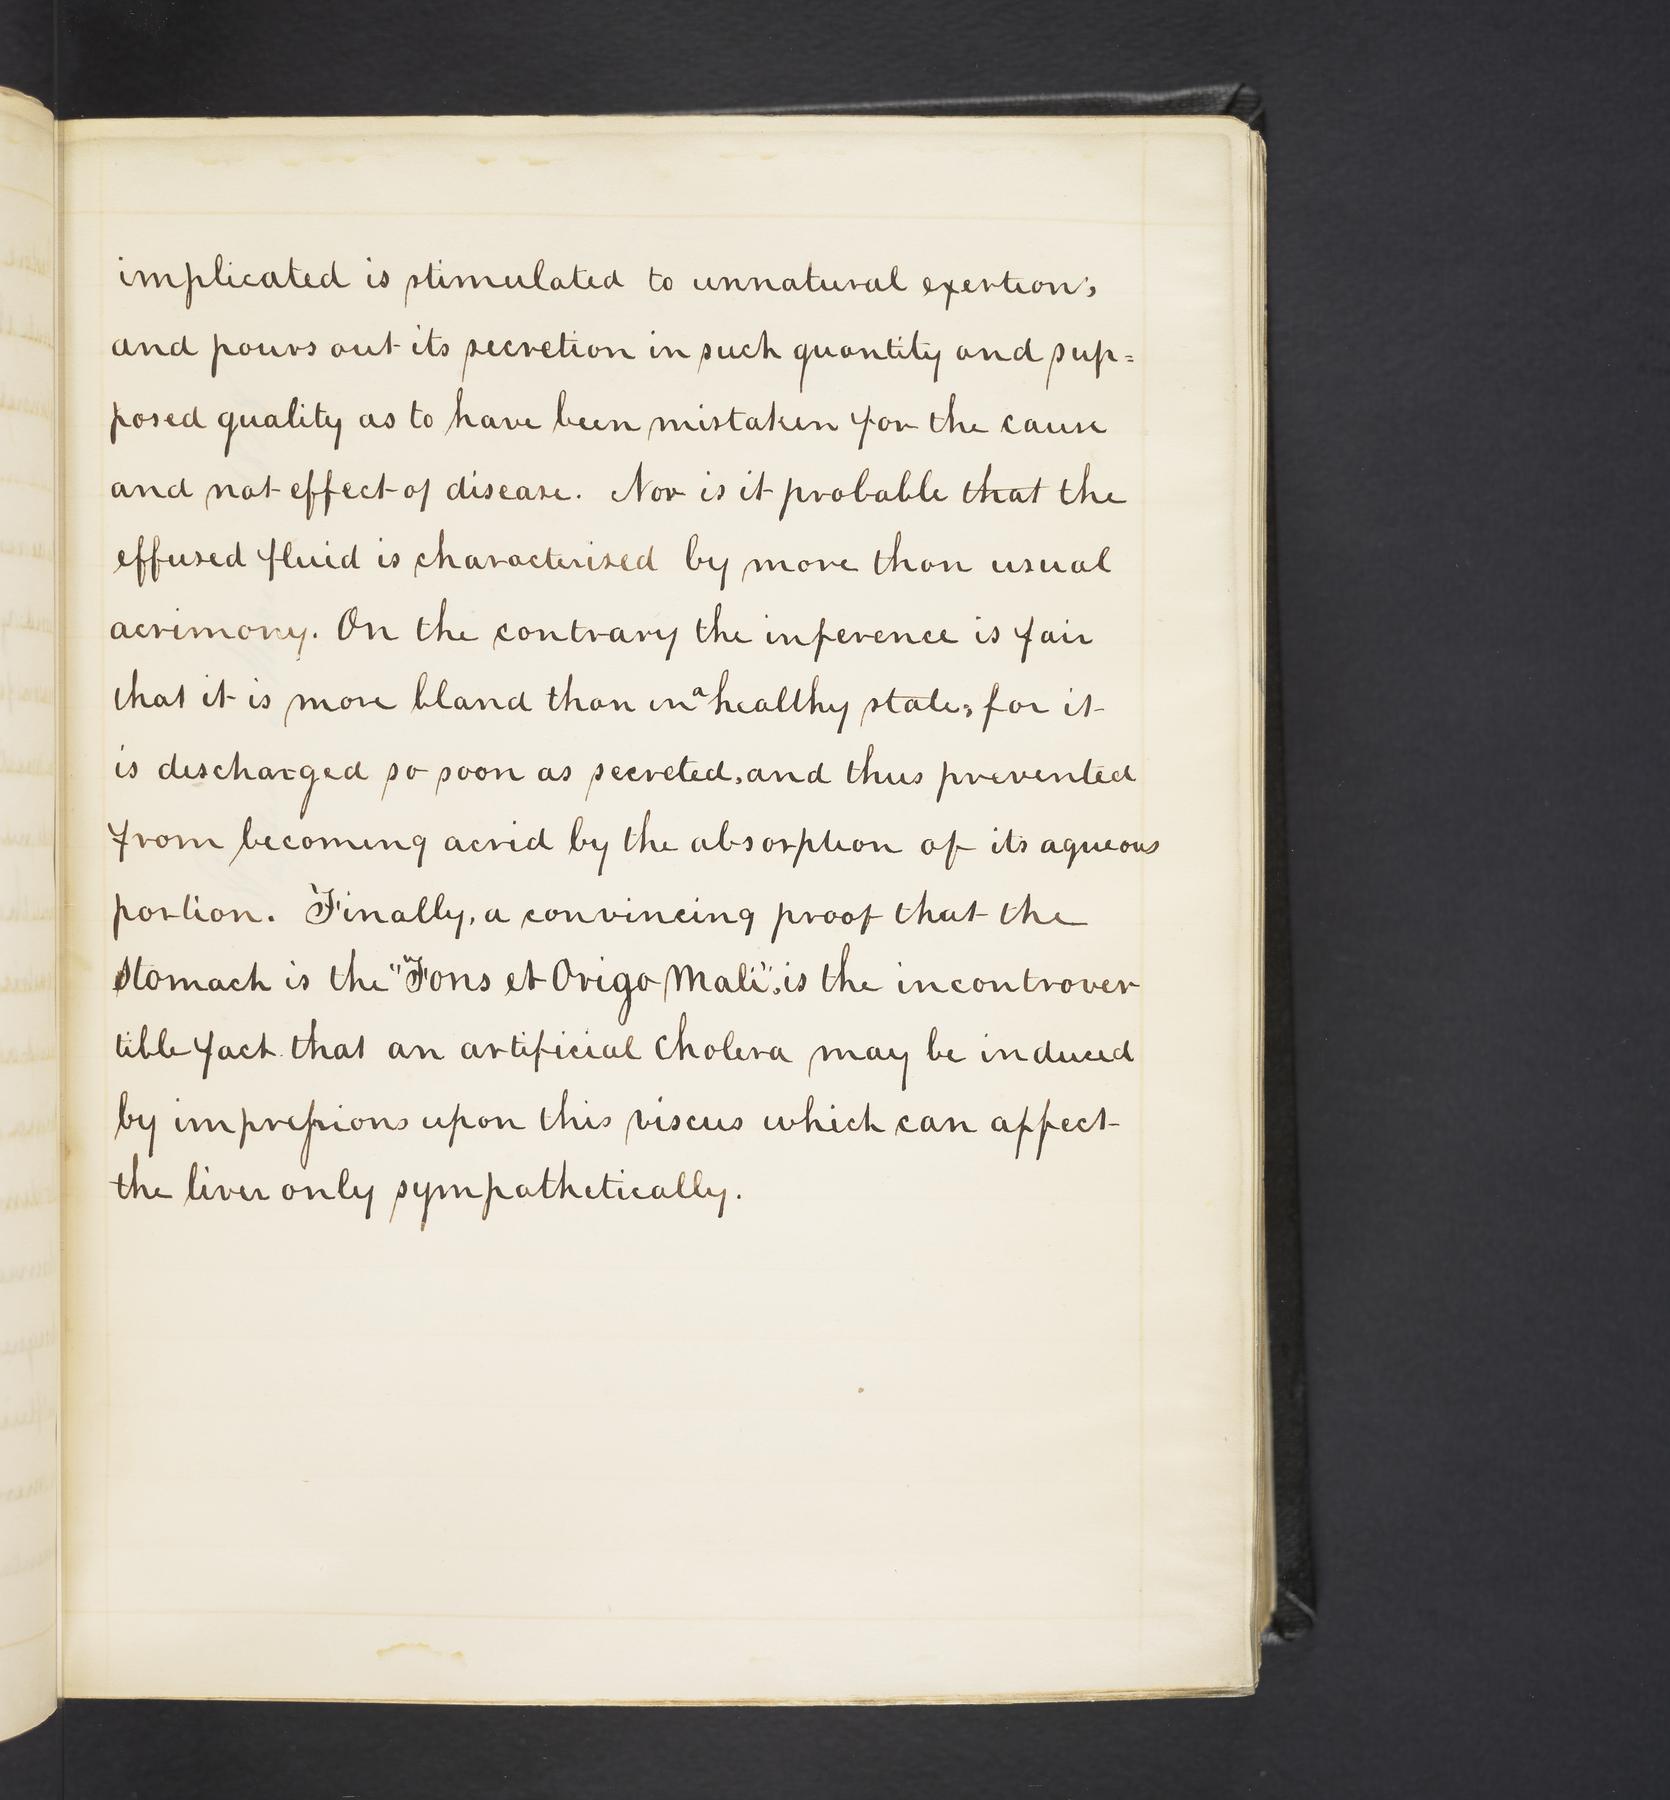 implicated is stimulated to unnatural exertion;
and pours out its secretion in such quantity and sup=
posed quality as to have been mistaken for the cause
and not effect of disease. Nor is it probable that the
effused fluid is characterised by more than usual
acrimony. On the contrary the inference is fair
that it is more bland than in a healthy state, for it
is discharged so soon as secreted, and thus prevented
from becoming acrid by the absorption of its aqueous
portion. Finally, a convincing proof that the
Stomach is the "Fons et Origo Mali", is the incontrover
tible fact that an artificial Cholera may be induced
by impreſsions upon this viscus which can affect
the liver only sympathetically.